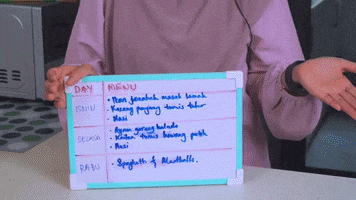 DAY MENU
ISNIN
• Ikan masak lemak
• Kacang panjang tumis telur
• Nasi
SELASA
• Ayam goreng
• Kailan tumis bawang putih
• Nasi
RABU
• Spaghetti & Meatballs.